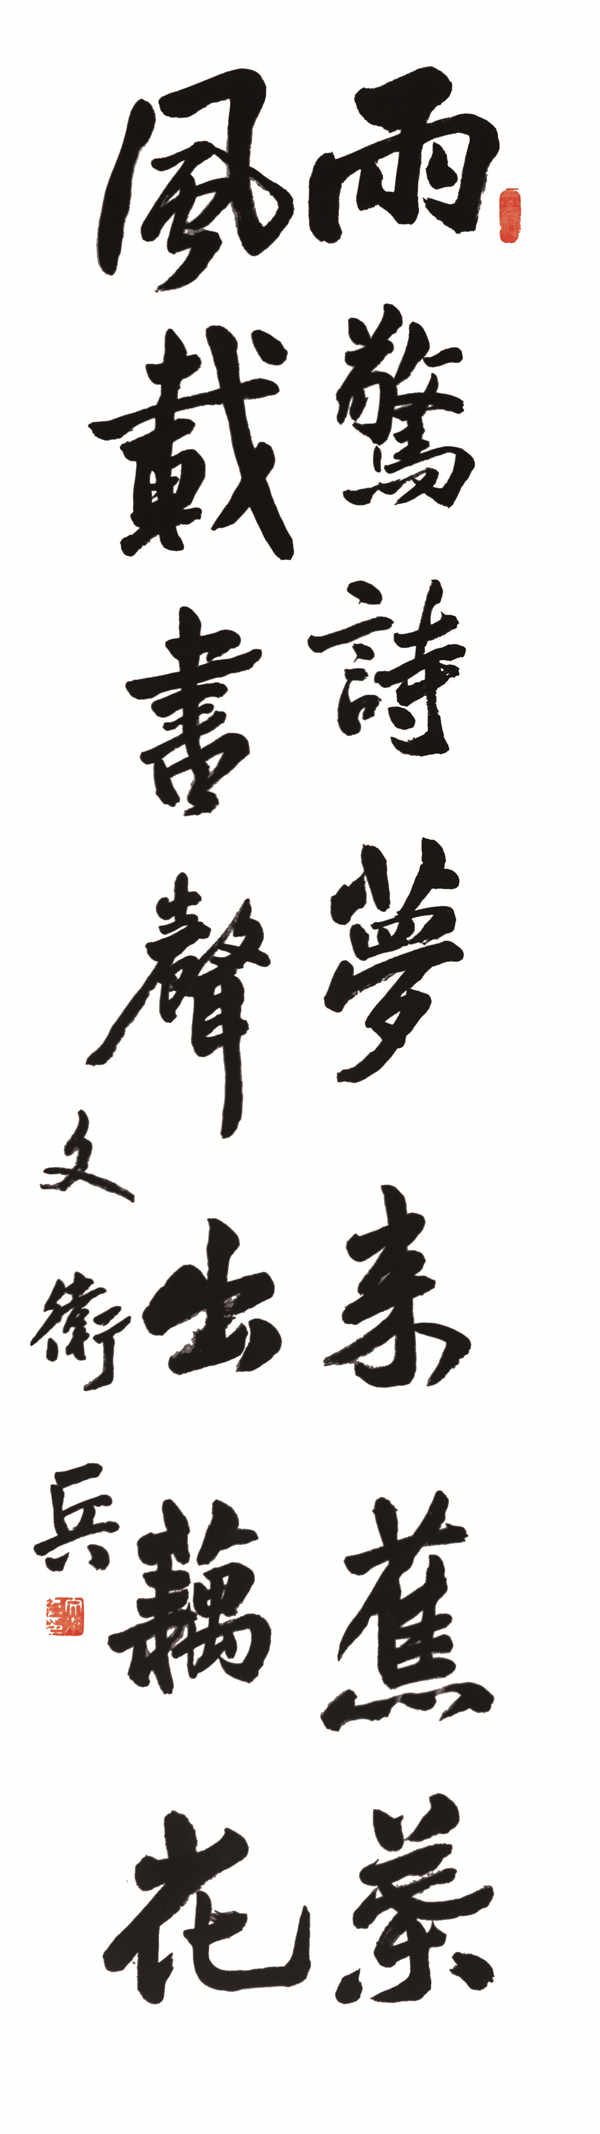 雨驚詩夢来蕉葉
風載書聲出藕花
文衛兵